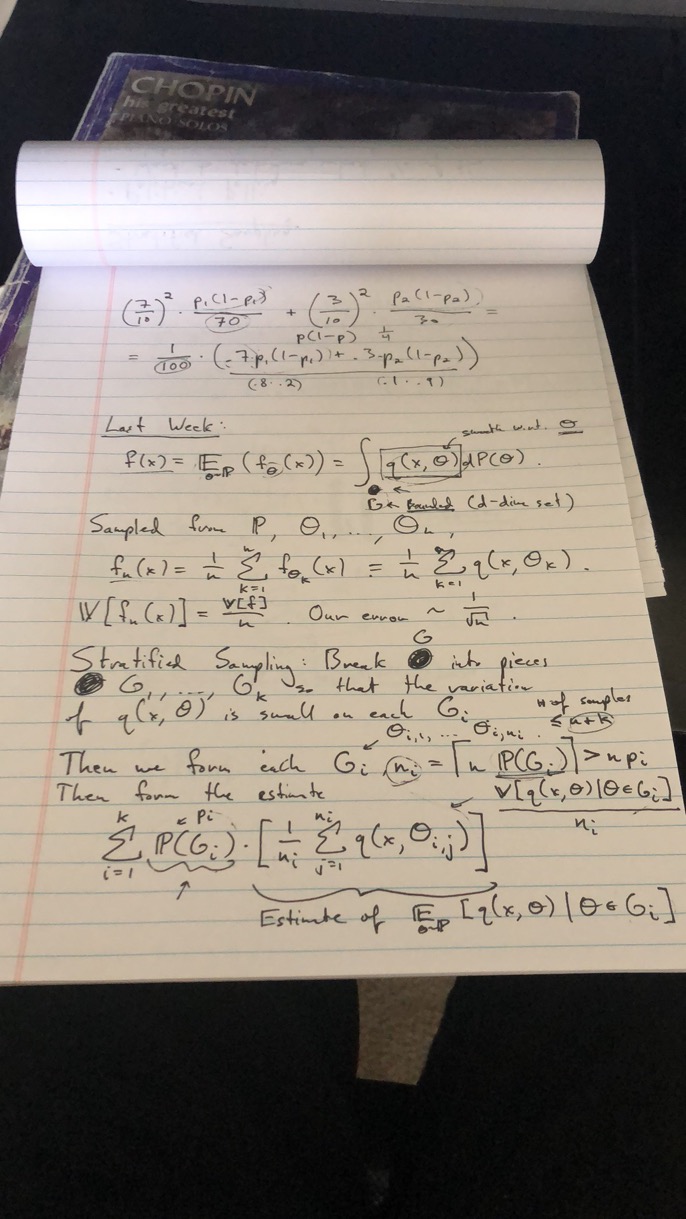 CHOPIN
his greatest
PIANO SOLOS
(7/10)² · p₁(1-p₁)/70 + (3/10)² · p₂(1-p₂)/30 =
p(1-p) 1/4
= 1/100 · (.7p₁(1-p₁) + .3p₂(1-p₂))
(.8 · .2) (.1 · .9)
Last Week: smooth w.r.t. θ
f(x) = 𝔼_{θ~ℙ}(f_θ(x)) = ∫ q(x,θ) dP(θ).
G ← bounded (d-dim set)
Sampled from ℙ, θ₁, ..., θₙ,
fₙ(x) = 1/n Σ_{k=1}^{n} f_{θₖ}(x) = 1/n Σ_{k=1}^{n} q(x,θₖ).
𝕍[fₙ(x)] = 𝕍[f]/n. Our error ~ 1/√n.
G
Stratified Sampling: Break into pieces
G₁, ..., Gₖ so that the variation
of q(x,θ) is small on each Gᵢ
# of samples
≤ n+k
θᵢ,₁, ... θᵢ,ₙᵢ.
Then we form each Gᵢ, nᵢ = ⌈n ℙ(Gᵢ)⌉ > n pᵢ
Then form the estimate
𝕍[q(x,θ) | θ∈Gᵢ]/nᵢ
← pᵢ
Σ_{i=1}^{k} ℙ(Gᵢ) · [1/nᵢ Σ_{j=1}^{nᵢ} q(x,θᵢ,ⱼ)]
Estimate of 𝔼_{θ~ℙ}[q(x,θ) | θ∈Gᵢ]